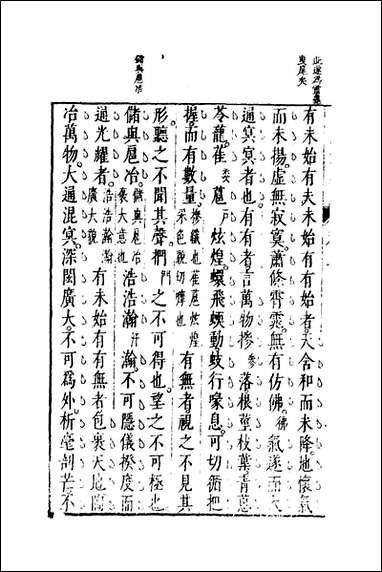 儲與扈冶
有未始有夫未始有有始者天含和而未降地懷氣
而未揚虛無寂寞蕭條霄霓無有仿佛佛氣遂而大
通冥冥者也有有者言萬物摻參落根莖枝葉青葱
苓蘢萑蔰戶炫煌蠉飛蝡動蚑行喙息可切循把
握而有數量也萑蔰炫煌采色貌切摩也有無者視之不見其
形聽之不聞其聲捫門之不可得也望之不可極也
儲與扈冶儲與扈冶褒大意也浩浩瀚汗瀚不可隱儀揆度而
通光耀者浩浩瀚瀚廣大貌有未始有有無者包裹天地陶
冶萬物大通混冥深閎廣大不可爲外析毫剖芒不